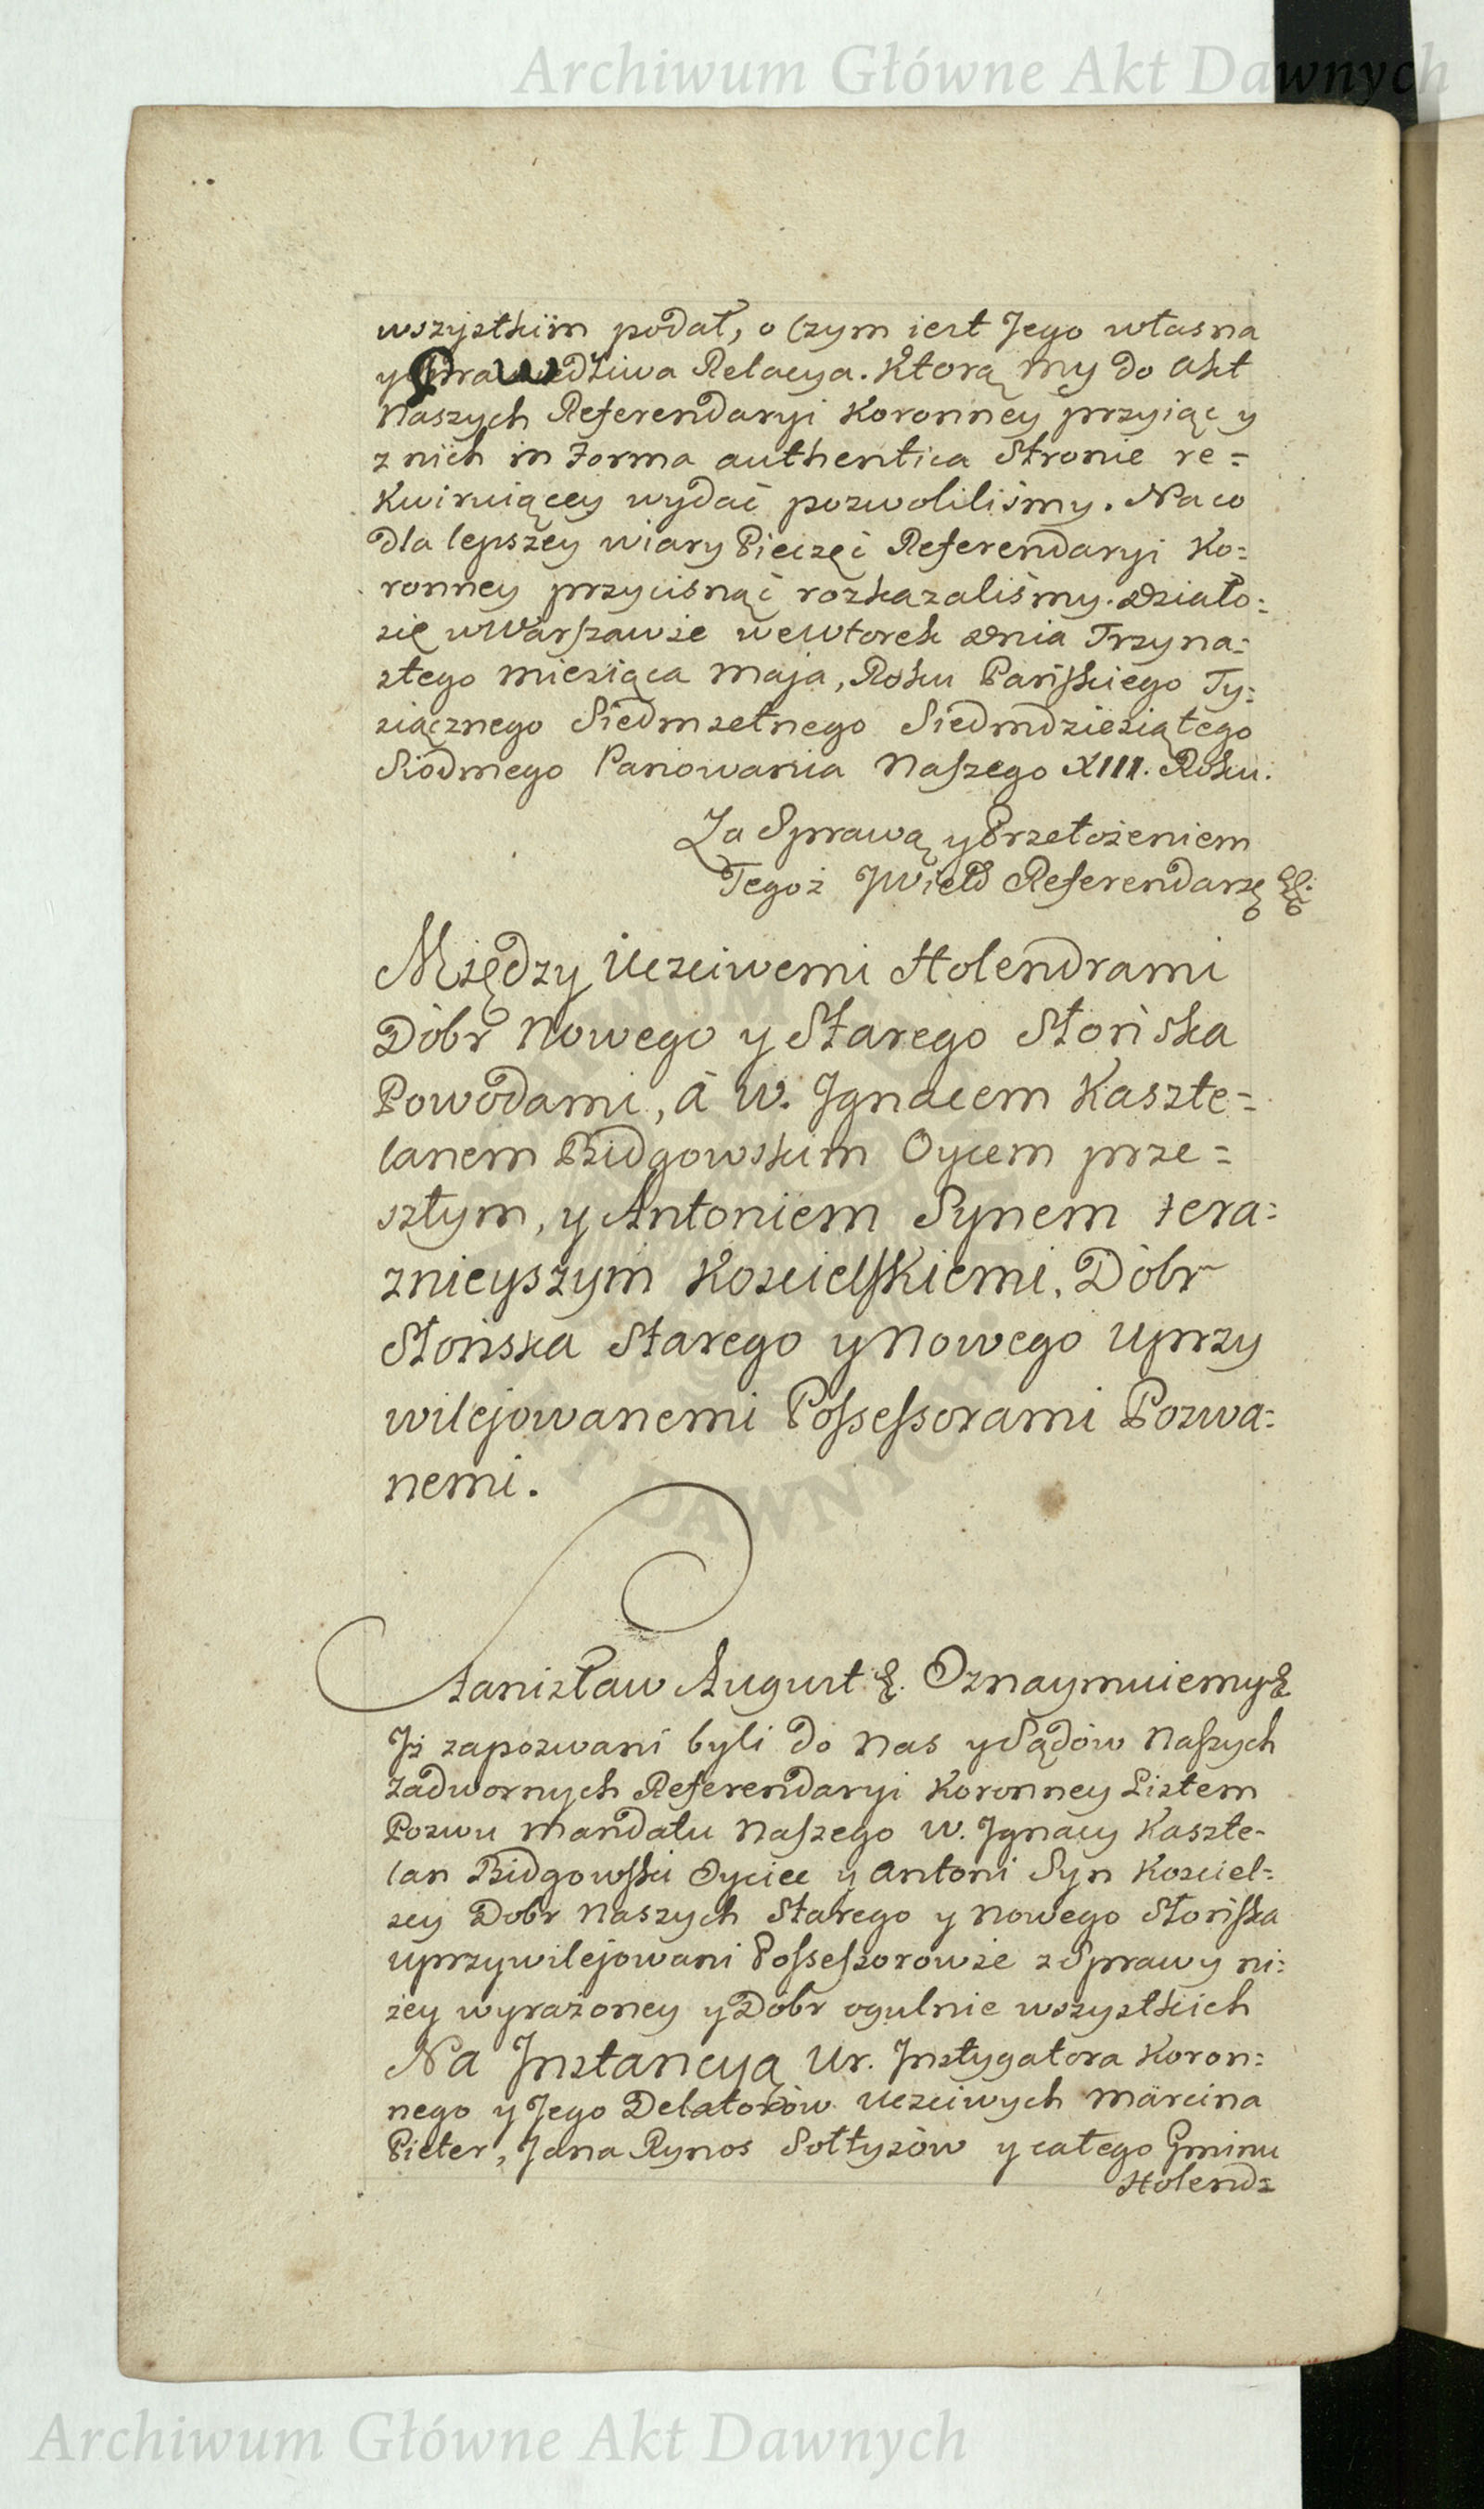 Archiwum Główne Akt Dawnych
wszystkim podał, o czym iest Jego własna
y sprawedliwa Relacya. Którą my do Akt
Naszych Referendaryi Koronney przyiąć y
z nich in Forma authentica Stronie re=
kwiruiącey wydać pozwoliliśmy. Na co
dla lepszey wiary Pieczęć Referendaryi Ko=
ronney przycisnąć rozkazaliśmy. Działo=
się w Warszawie we Wtorek Dnia Trzyna=
stego miesiąca Maja, Roku Pańskiego Ty=
siącznego Siedmsetnego Siedmdziesiątego
Siódmego Panowania Naszego XIII. Roku.
Za Sprawą y Przełożeniem
Tegoż JWielo Referendarza &c.
Między Uczciwemi Holendrami
Dóbr Nowego y Starego Słońska
Powodami, á W. Jgnacem Kaszte=
lanem Bidgowskim Oycem prze=
szłym, y Antoniem Synem tera=
znieyszym Kościelskiemi, Dóbr
Słońska Starego y Nowego uprzy
wilejowanemi Possessorami Pozwa=
nemi.
Stanisław August &. Oznaymuiemy &
Jż zapozwani byli do Nas y Sądów Naszych
Zadwornych Referendaryi Koronney Listem
Pozwu Mandatu Naszego W. Jgnacy Kaszte-
lan Bidgowski Oyciec y Antoni Syn Kościel=
scy Dobr Naszych Starego y Nowego Słońska
uprzywilejowani Possessorowie z Sprawy ni=
żey wyrażoney y Dobr ogulnie wszystkich
Na Jnstancyą Ur. Jnstygatora Koron=
nego y Jego Delatorów Uczciwych Marcina
Pieter, Jana Rynos Sołtysów y całego Gminu
Holend=
ARCHIWUM GŁÓWNE AKT DAWNYCH
Archiwum Główne Akt Dawnych